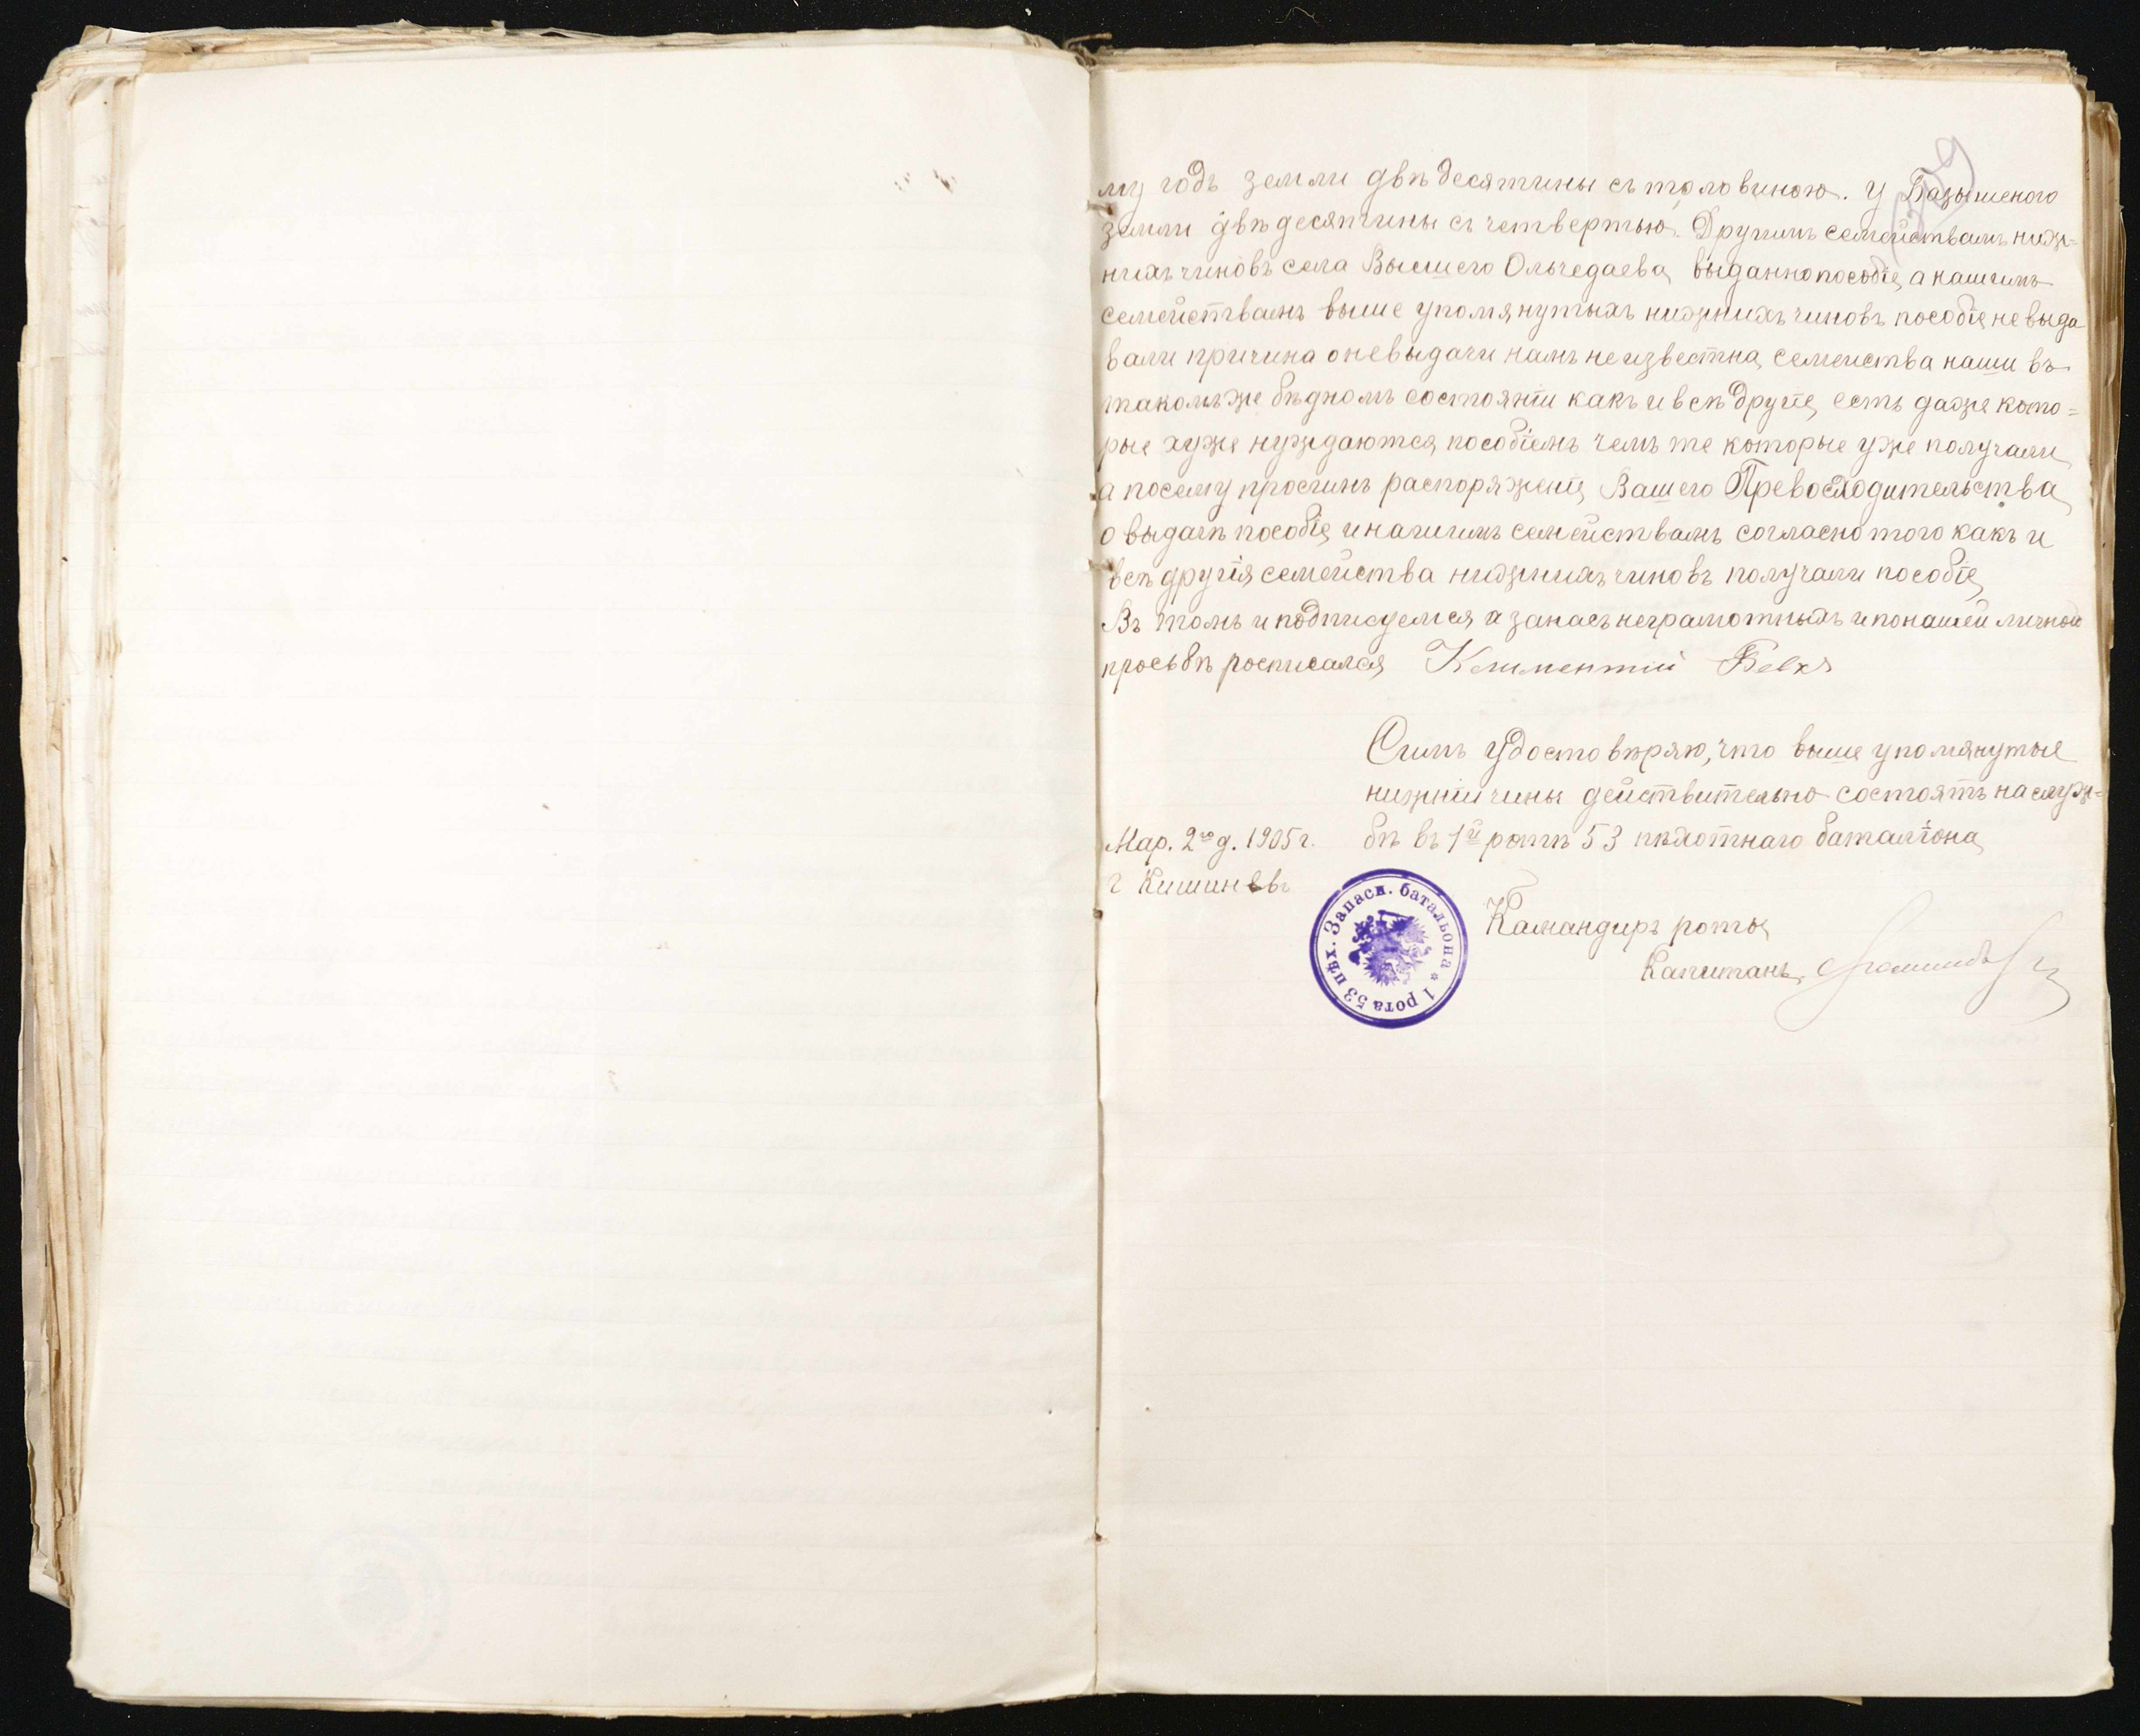 му годъ земли двѣ десятины съ половиною. У
земли двѣ десятины съ четвертью. Другимъ семействамъ ниж=
нихъ чиновъ села Высшего Ольчедаева, выданно пособіе, а нашимъ
семействамъ выше упомянутыхъ нижнихъ чиновъ пособіе не выда
вали причина о невыдачи намъ не извѣстна, семейства наши въ
такомъ же бѣдномъ состояніи какъ и всѣ другіе, есть даже кото=
рые хуже нуждаются, пособіемъ чемъ те которые уже получали,
а посему просимъ распоряженіе, Вашего Превосходительства,
о выдачѣ пособіе, и нашимъ семействамъ согласно того какъ и
всѣ другія семейства нижнихъ чиновъ получали пособіе,
Въ томъ и подписуемся а за насъ неграмотныхъ и по нашей личной
просьбѣ росписался Климентій
Симъ удостовѣряю, что выше упомянутые
нижніи чины действительно состоятъ на служ=
бѣ въ 1й ротѣ 53 пѣхотнаго баталіона,
Мар. 2го д. 1905 г.
г Кишинёвъ
1 рота 53 пѣх. Запасн. батальона *
Камандиръ роты,
Капитанъ,